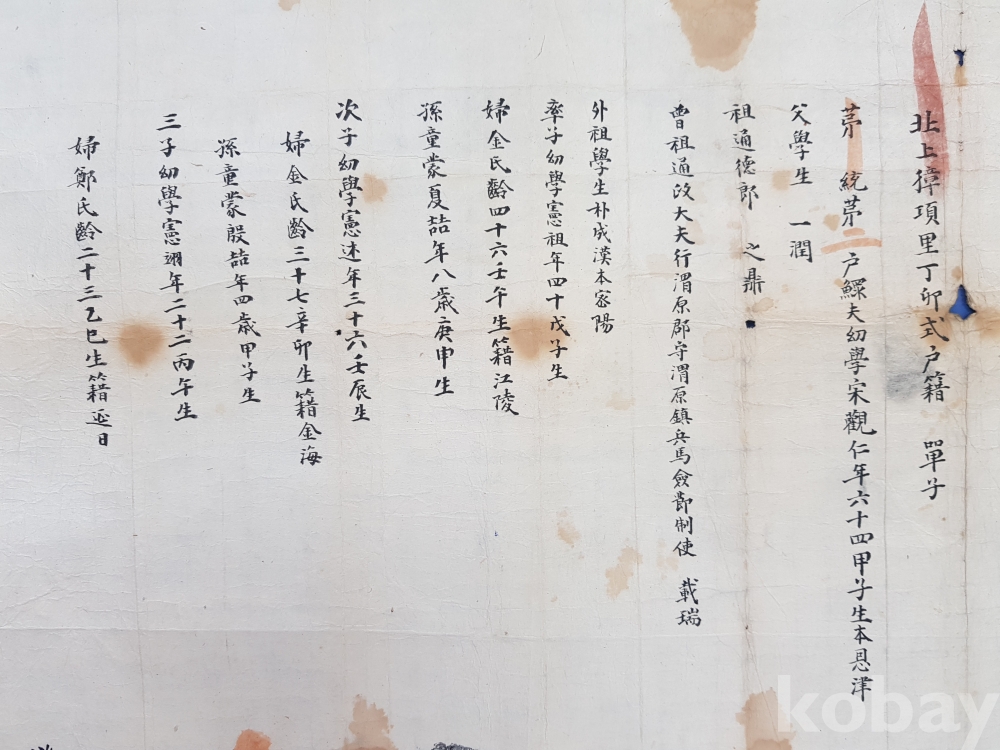 北上獐項里丁卯式户籍 單子
苐 統苐二户鰥夫幼學宋觀仁年六十四甲子生本恩津
父學生 一潤
祖通德郎 之鼎
曾祖通政大夫行渭原郡守渭原鎮兵馬僉節制使 載瑞
外祖學生朴成漢本密陽
率子幼學憲祖年四十戊子生
婦金氏齡四十六壬午生籍江陵
孫童蒙夏喆年八歲庚申生
次子幼學憲述年三十六壬辰生
婦金氏齡三十七辛卯生籍金海
孫童蒙殷喆年四歲甲子生
三子幼學憲翊年二十二丙午生
婦鄭氏齡二十三乙巳生籍延日
kobay